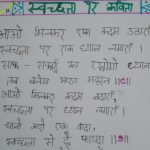 स्वच्छता पर कविता
आओ मिलकर एक कदम उठाओ
स्वच्छता पर एक ध्यान लगाओ।
साफ - सफाई का रखोगे ध्यान
तब बनेगा भारत महान ॥१॥
आओ मिलकर कदम बढ़ाओ,
स्वच्छता पर ध्यान लगाओ।
चलो करो एक वादा,
स्वच्छता से है फायदा ॥२॥